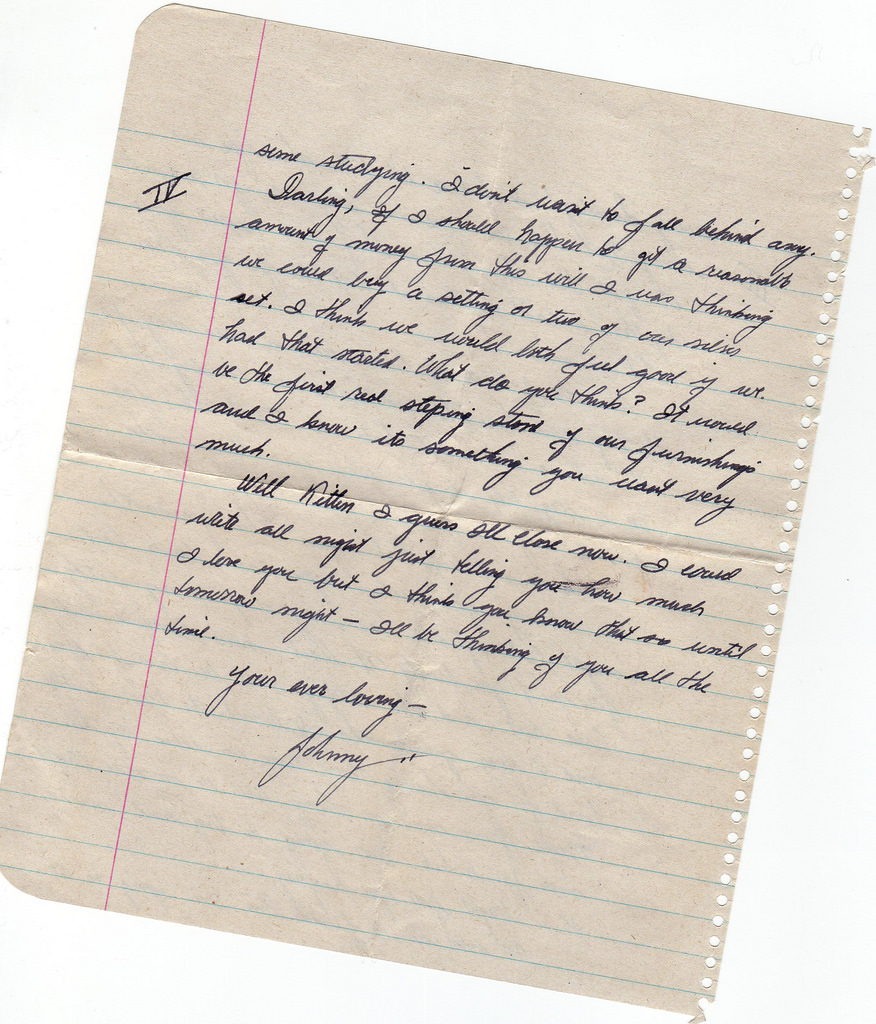 IV
some studying. I don't want to fall behind any.
Darling, if I should happen to get a reasonable
amount of money from this will I was thinking
we could buy a setting or two of our silver
set. I think we would both feel good if we
had that started. What do you think? It would
be the first real steping stone of our furnishings
and I know its something you want very
much.
Well Kitten I guess Ill close now. I could
write all night just telling you how much
I love you but I think you know that so until
tomorrow night – Ill be thinking of you all the
time.
Your ever loving –
Johnny